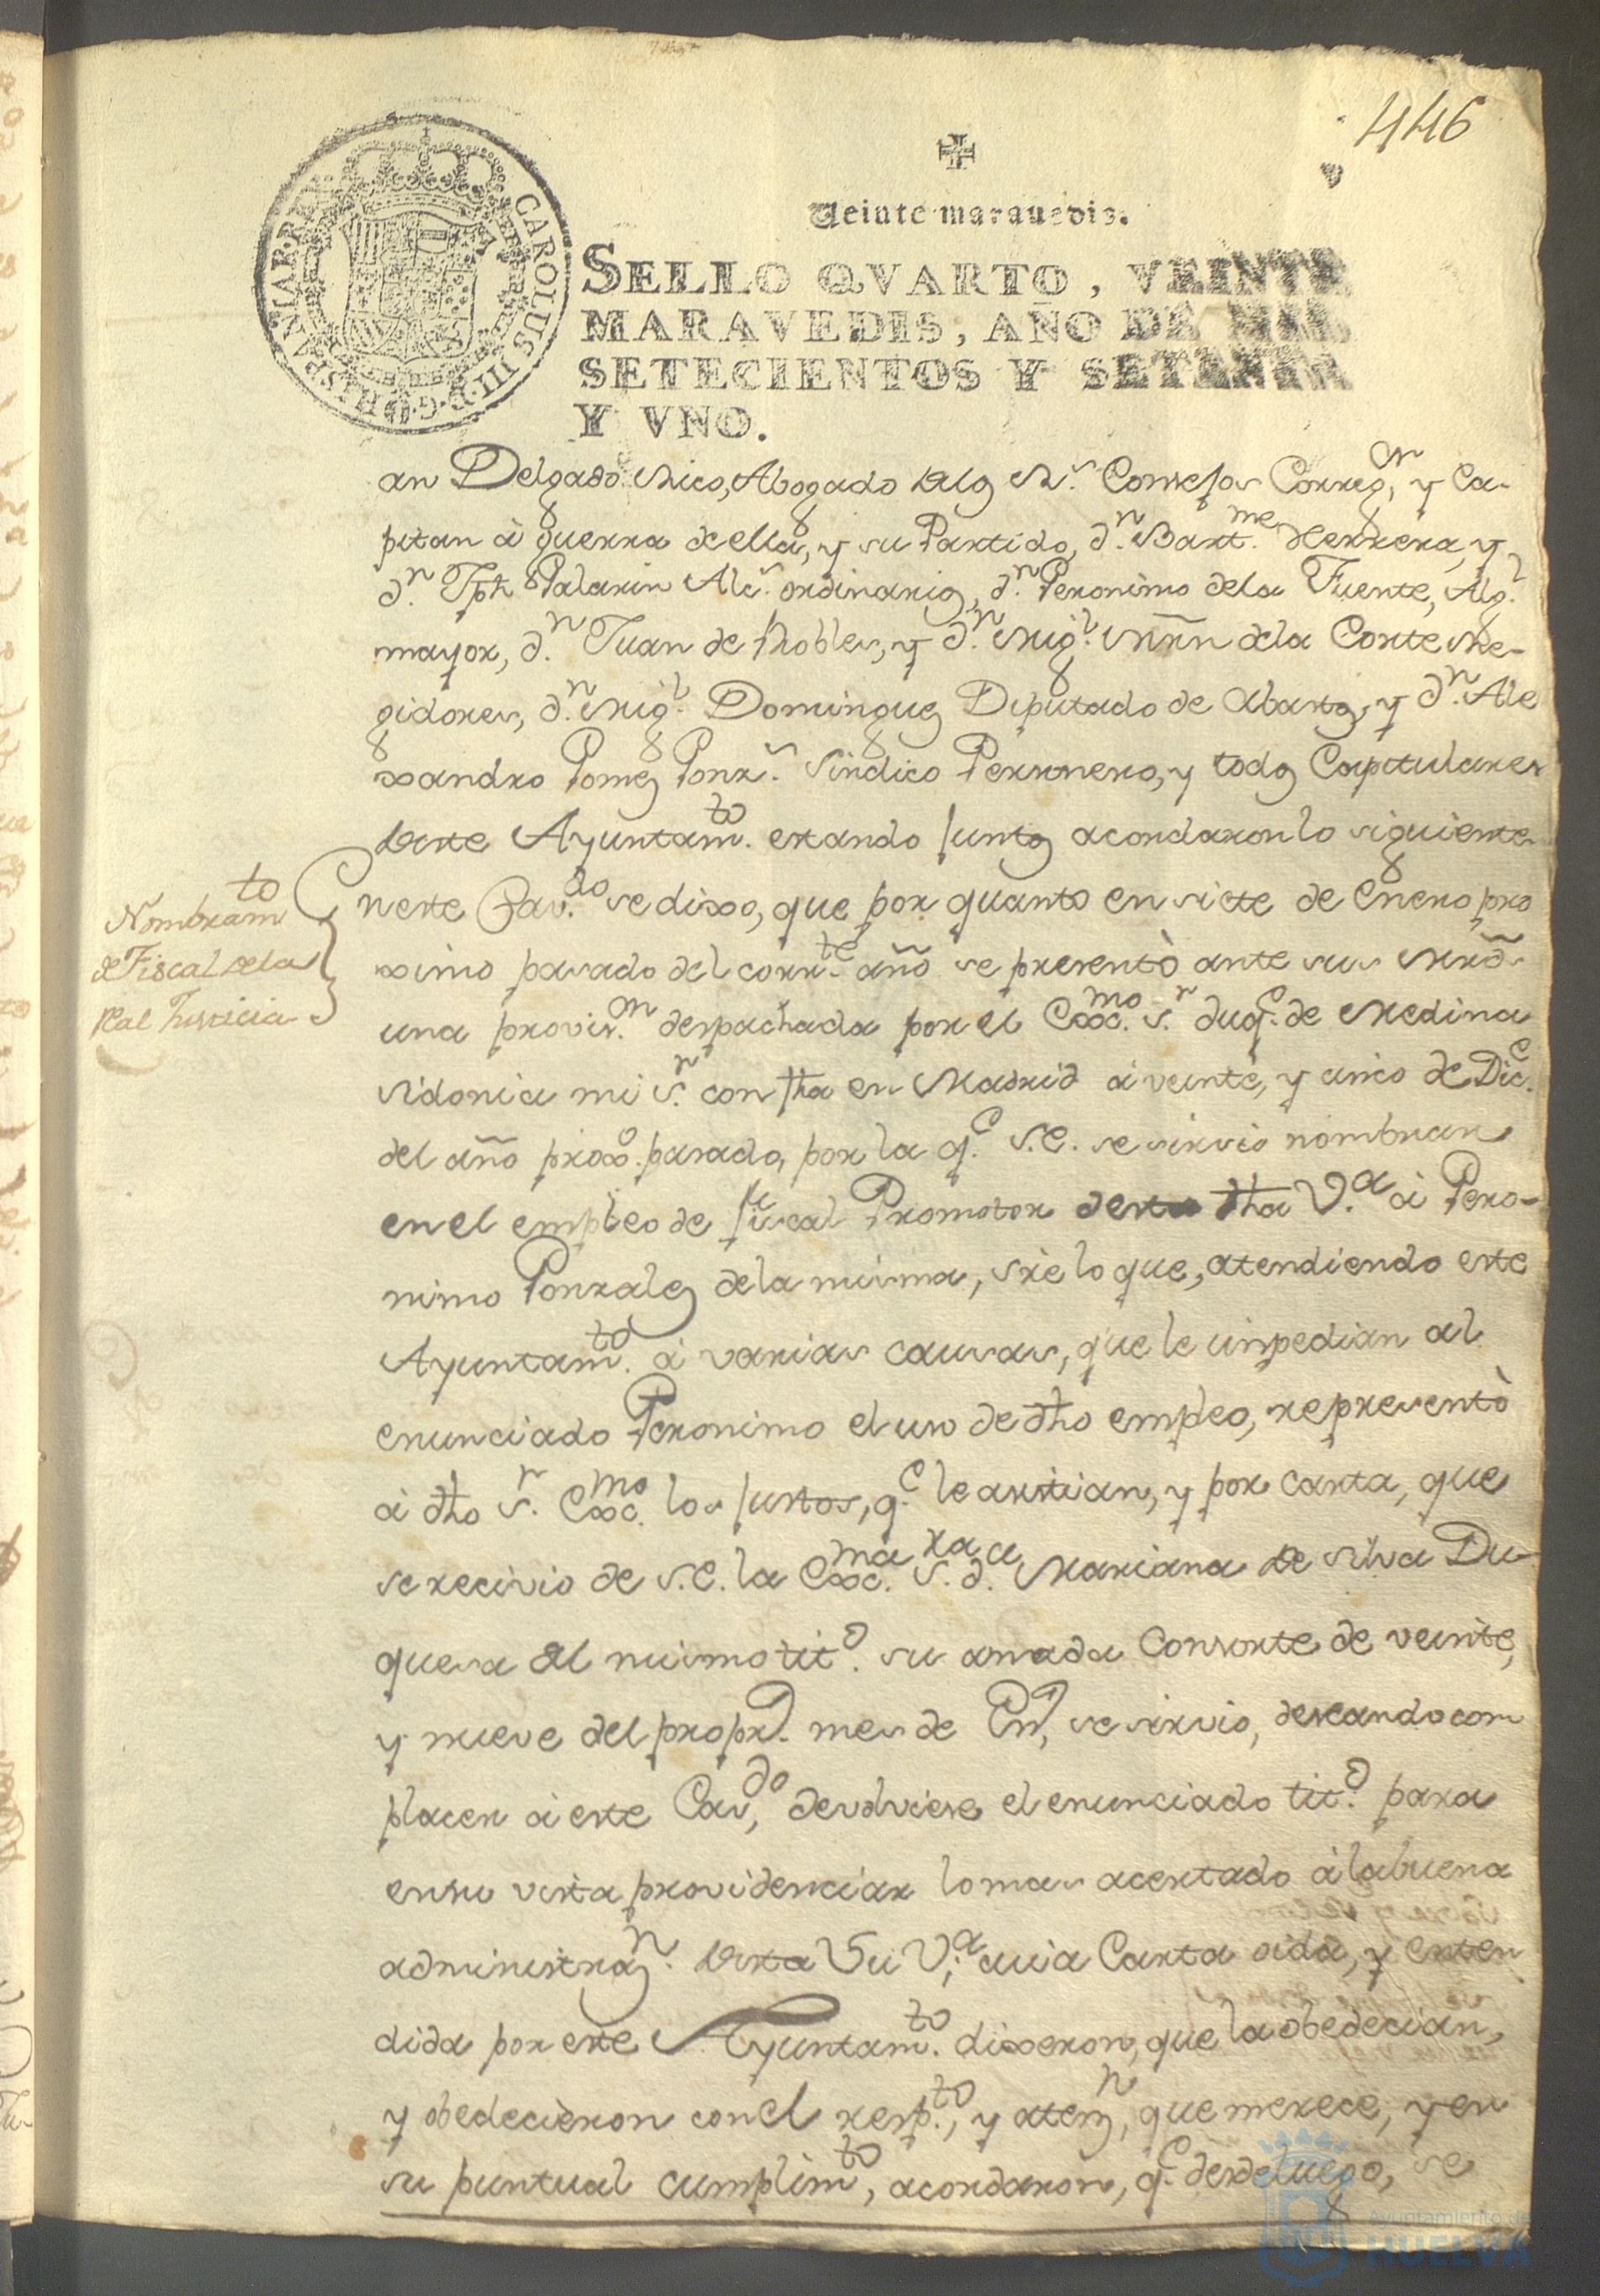 446
Veinte marauedis.
SELLO QVARTO, VEINTE
MARAVEDIS, AÑO DE MIL
SETECIENTOS Y SETENTA
Y VNO.
CAROLUS III D.G. HISPANIAR. REX
an Delgado Rico, Abogado delos Rs. Consejos Corregor, y Ca-
pitan à guerra de ella, y su Partido, dn. Bartme. Herrera, y
dn. Jph Palarin Alcs. ordinarios, dn. Geronimo dela Fuente, Algl.
mayor, dn. Juan de Robles, y dn. Migl. Mrñ dela Corte Re-
gidores, dn. Migl. Dominguez Diputado de Abastos, y dn. Ale
xandro Gomez Gonzs. Sindico Personero, y todos Capitulares
deste Ayuntamto. estando juntos acordaron lo siguiente
Nombramto
de Fiscal dela
Real Justicia
Eneste Cavdo. se dixo, que por quanto en siete de Enero pro
ximo pasado del corrte. año se presentò ante sus Mrds
una provisn. despachada por el Excmo. Sr. duqe. de Medina
sidonia mi Sr. con fha en Madrid à veinte, y cinco de Dice.
del año proxo. pasado, por la qe. S.E. se sirvio nombrar
en el empleo de fiscal Promotor desta dha Va. à Gero-
nimo Gonzalez dela misma, sre lo que, atendiendo este
Ayuntamto. à varias causas, que le impedian al
enunciado Geronimo el uso de dho empleo, representò
à dho Sr. Excmo. los justos, qe. le asistian, y por carta, que
se recivio de S.E. la Excma. Sra. da. Mariana de Silva Du-
quesa del mismo tito. su amada Consorte de veinte,
y nueve del propro. mes de Eno, se sirvio, deseando com
placer à este Cavdo, devolviese el enunciado tito. para
en su vista providenciar lo mas acertado à la buena
administrazn. desta Su Va; cuia Carta oida, y enten
dida por este Ayuntamto. dixeron, que la obedecian,
y obedecieron con el respto., y atenzn, que merece, y en
su puntual cumplimto, acordaron, qe. desde luego, se
Ayuntamiento de
HUELVA